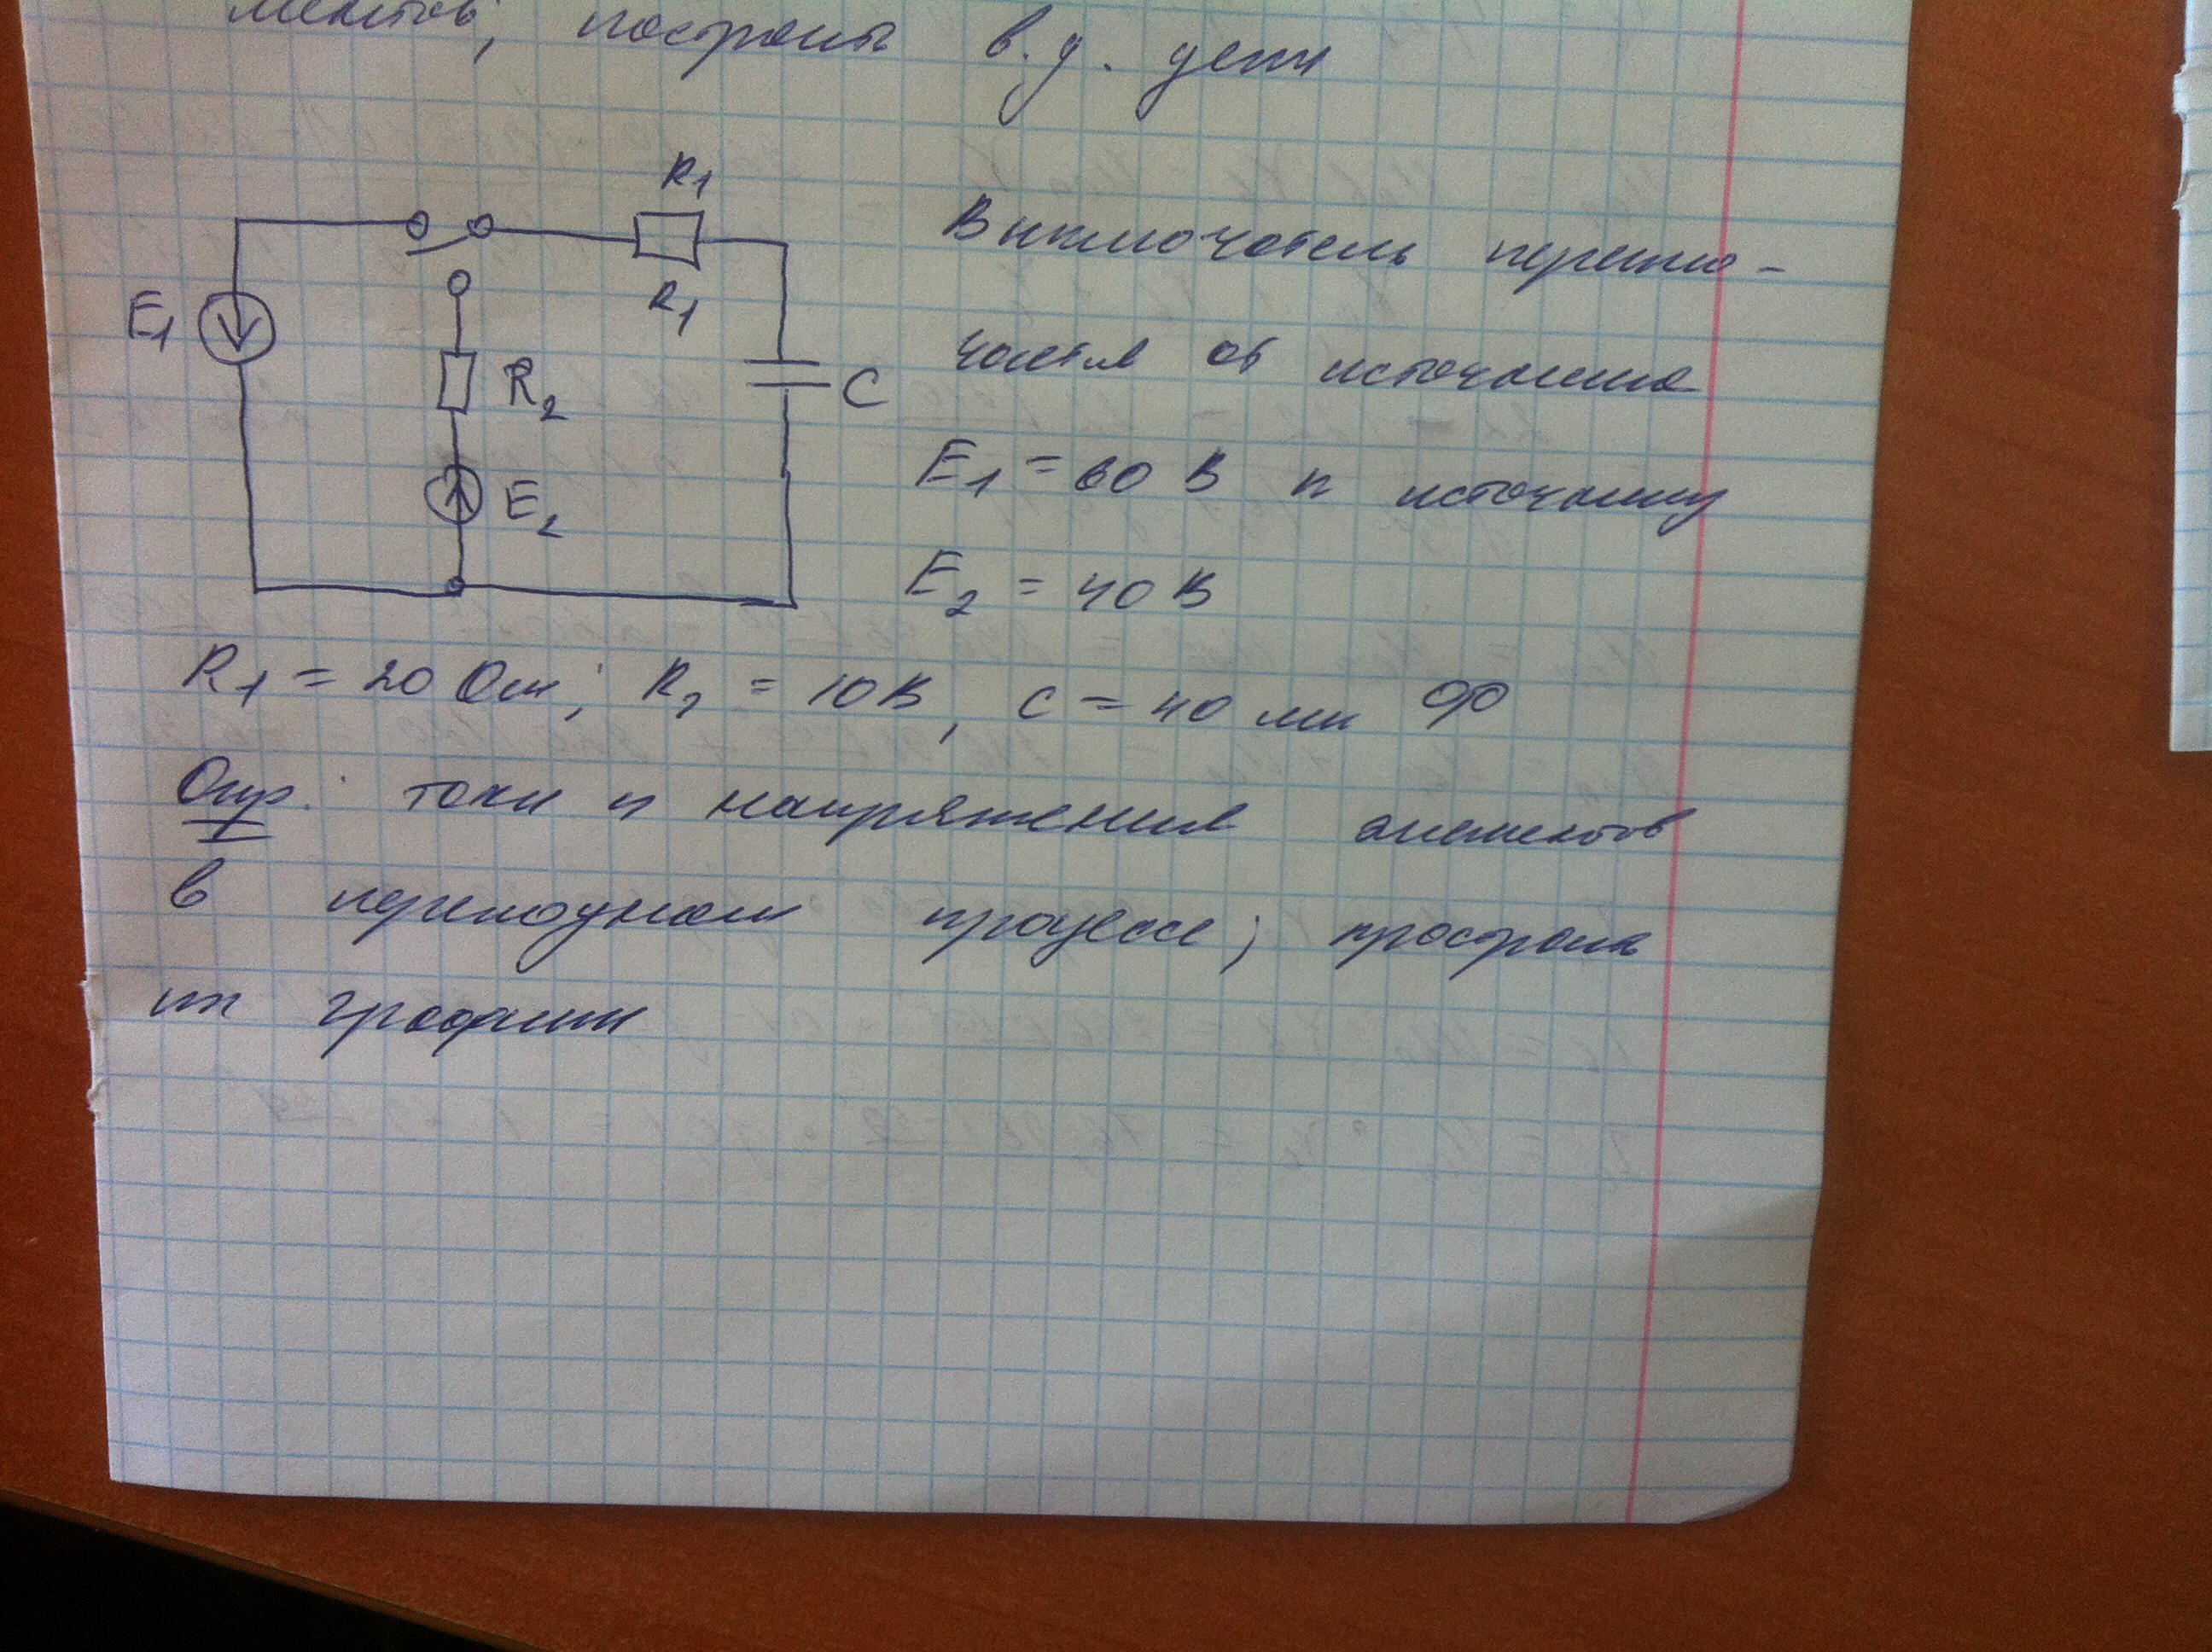 ментов; построить в.д. цепи
R1
R1
E1
R2
C
E2
Выключатель переклю-
чается от источника
E1 = 60 В к источнику
E2 = 40 В
R1 = 20 Ом; R2 = 10 В, C = 40 мк Ф
Опр.: токи и напряжения элементов
в переходном процессе; простроить
их графики